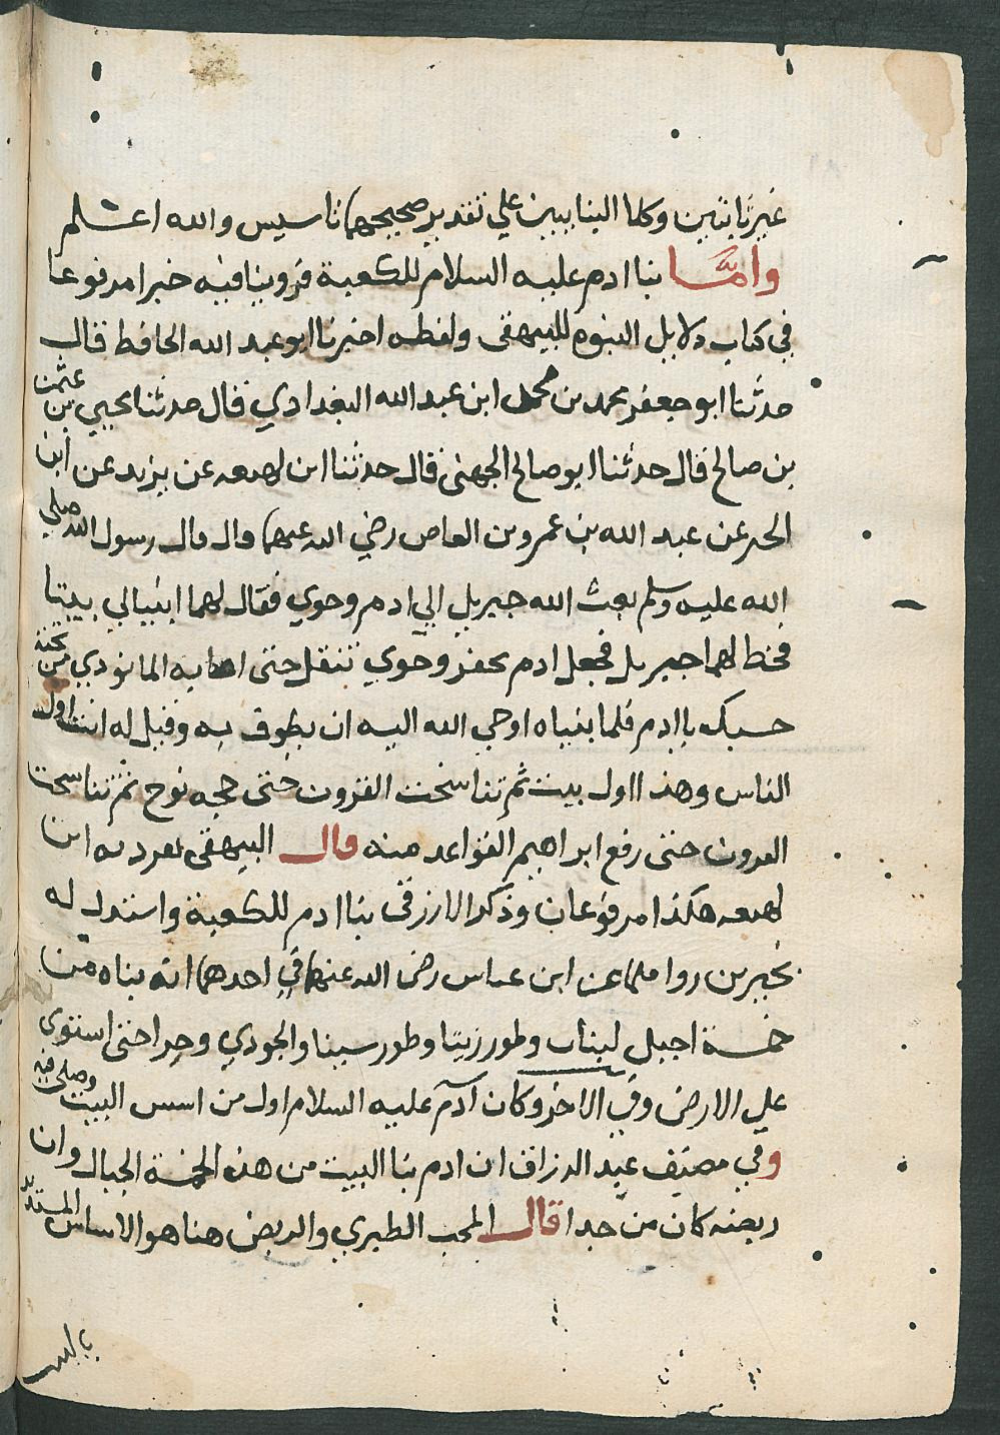 غير ثابتين وكلا البنايين علي تقدير صحيحهما تاسيس والله اعلم
وامّا بنا ادم عليه السلام للكعبة فروينا فيه خبرا مرفوعا
في كتاب دلايل النبوه للبيهقى ولفظه اخبرنا ابو عبد الله الحافظ قال
حدثنا ابو جعفر محمد بن محمد ابن عبد الله البغدادي قال حدثنا يحيي بن عثمن
بن صالح قال حدثنا ابو صالح الجهنى قال حدثنا ابن لهيعه عن يزيد عن ابن
الخير عن عبد الله بن عمرو بن العاص رضي الله عنهما قال قال رسول الله صلي
الله عليه وسلم بعث الله جبريل الي ادم وحوي فقال لهما ابنيا لي بيتا
فخط لهما جبريل فجعل ادم يحفر وحوي تنقل حتى اصابه الما نودي من تحته
حسبك يا ادم فلما بنياه اوحي الله اليه ان يطوف به وقيل له انت اول
الناس وهذا اول بيت ثم تناسخت القرون حتى حجه نوح ثم تناسخت
القرون حتى رفع ابراهيم القواعد منه قال البيهقى تفرد به ابن
لهيعه هكذا مرفوعا وذكر الازرقى بنا ادم للكعبة واستدل له
بخبرين رواهما عن ابن عباس رضى الله عنهما في احدهما انه بناه من
خمسة اجبل لبنان وطور زيتا وطور سينا والجودي وحرا حتى استوي
علي الارض وفي الاخر وكان آدم عليه السلام اول من اسس البيت وصلي فيه
وفي مصنف عبد الرزاق ان ادم بنا البيت من هذه الخمسة الجبال وان
ربضه كان من حرا قال المحب الطبري والربض هنا هو الاساس المستدير
بالبيت